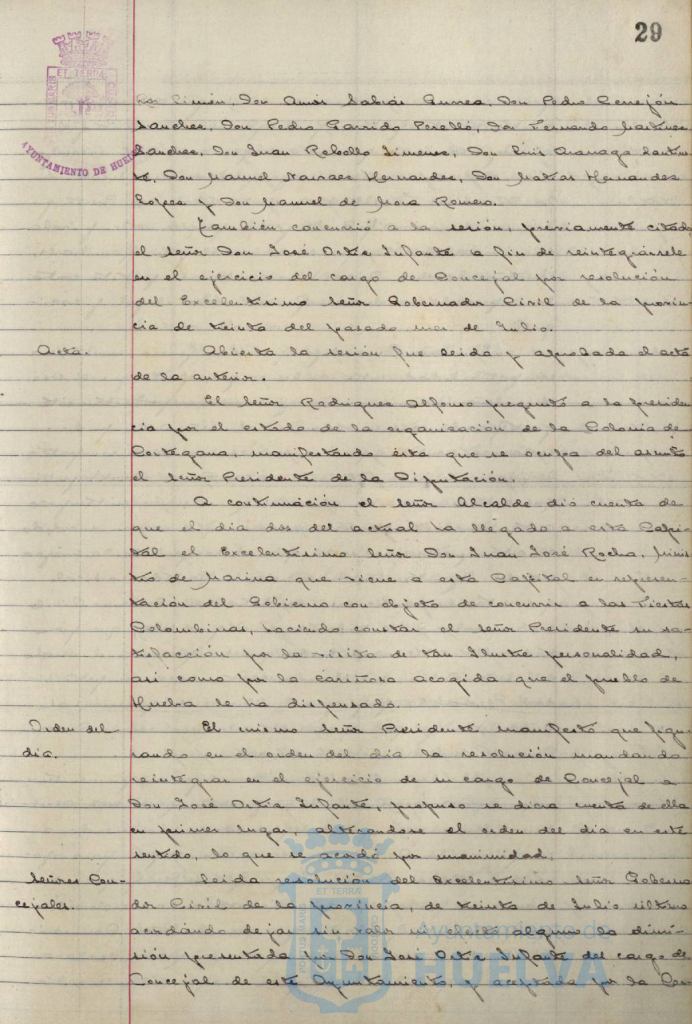 29
ET TERRA
AYUNTAMIENTO DE HUELVA
Simón, Don Amós Sabrás Gurrea, Don Pedro Cerrejón
Sanchez, Don Pedro Garrido Perelló, Don Fernando Martinez
Sanchez, Don Juan Rebollo Jimenez, Don Luis
Don Manuel Narvaez Hernandez, Don Matias Hernandez
Lopez y Don Manuel de Mora Romero.
También concurrió a la sesión, previamente citado
el señor Don José Ortiz Infante a fin de reintegrársele
en el ejercicio del cargo de Concejal por resolución
del Excelentísimo Señor Gobernador Civil de la provin-
cia de treinta del pasado mes de Julio.
Acta.
Abierta la sesión fue leida y aprobada el acta
de la anterior.
El Señor Rodriguez Alfonso preguntó a la presiden-
cia por el estado de la organización de la Colonia de
Cortegana, manifestando ésta que se ocupa del asunto
el señor Presidente de la Diputación.
A continuación el señor Alcalde dió cuenta de
que el dia dos del actual ha llegado a esta Capi-
tal el Excelentísimo Señor Don Juan José Rocha, Minis-
tro de Marina que viene a esta Capital en represen-
tación del Gobierno con objeto de concurrir a las Fiestas
Colombinas, haciendo constar el señor Presidente su sa-
tisfacción por la visita de tan Ilustre personalidad,
asi como por la cariñosa acogida que el pueblo de
Huelva le ha dispensado.
Orden del
dia.
El mismo Señor Presidente manifestó que figu-
rando en el orden del dia la resolución mandando
reintegrar en el ejercicio de su cargo de Concejal a
Don José Ortiz Infante, propuso se diera cuenta de ella
en primer lugar, alterandose el orden del dia en este
sentido, lo que se acordó por unanimidad.
Señores Con-
cejales.
Leida resolución del Excelentísimo Señor Goberna-
dor Civil de la provincia, de treinta de Julio último
acordando dejar sin valor ni efecto alguno la dimi-
sión presentada por Don José Ortiz Infante del cargo de
Concejal de este Ayuntamiento, y aceptada por la
ET TERRA
Ayuntamiento de
HUELVA